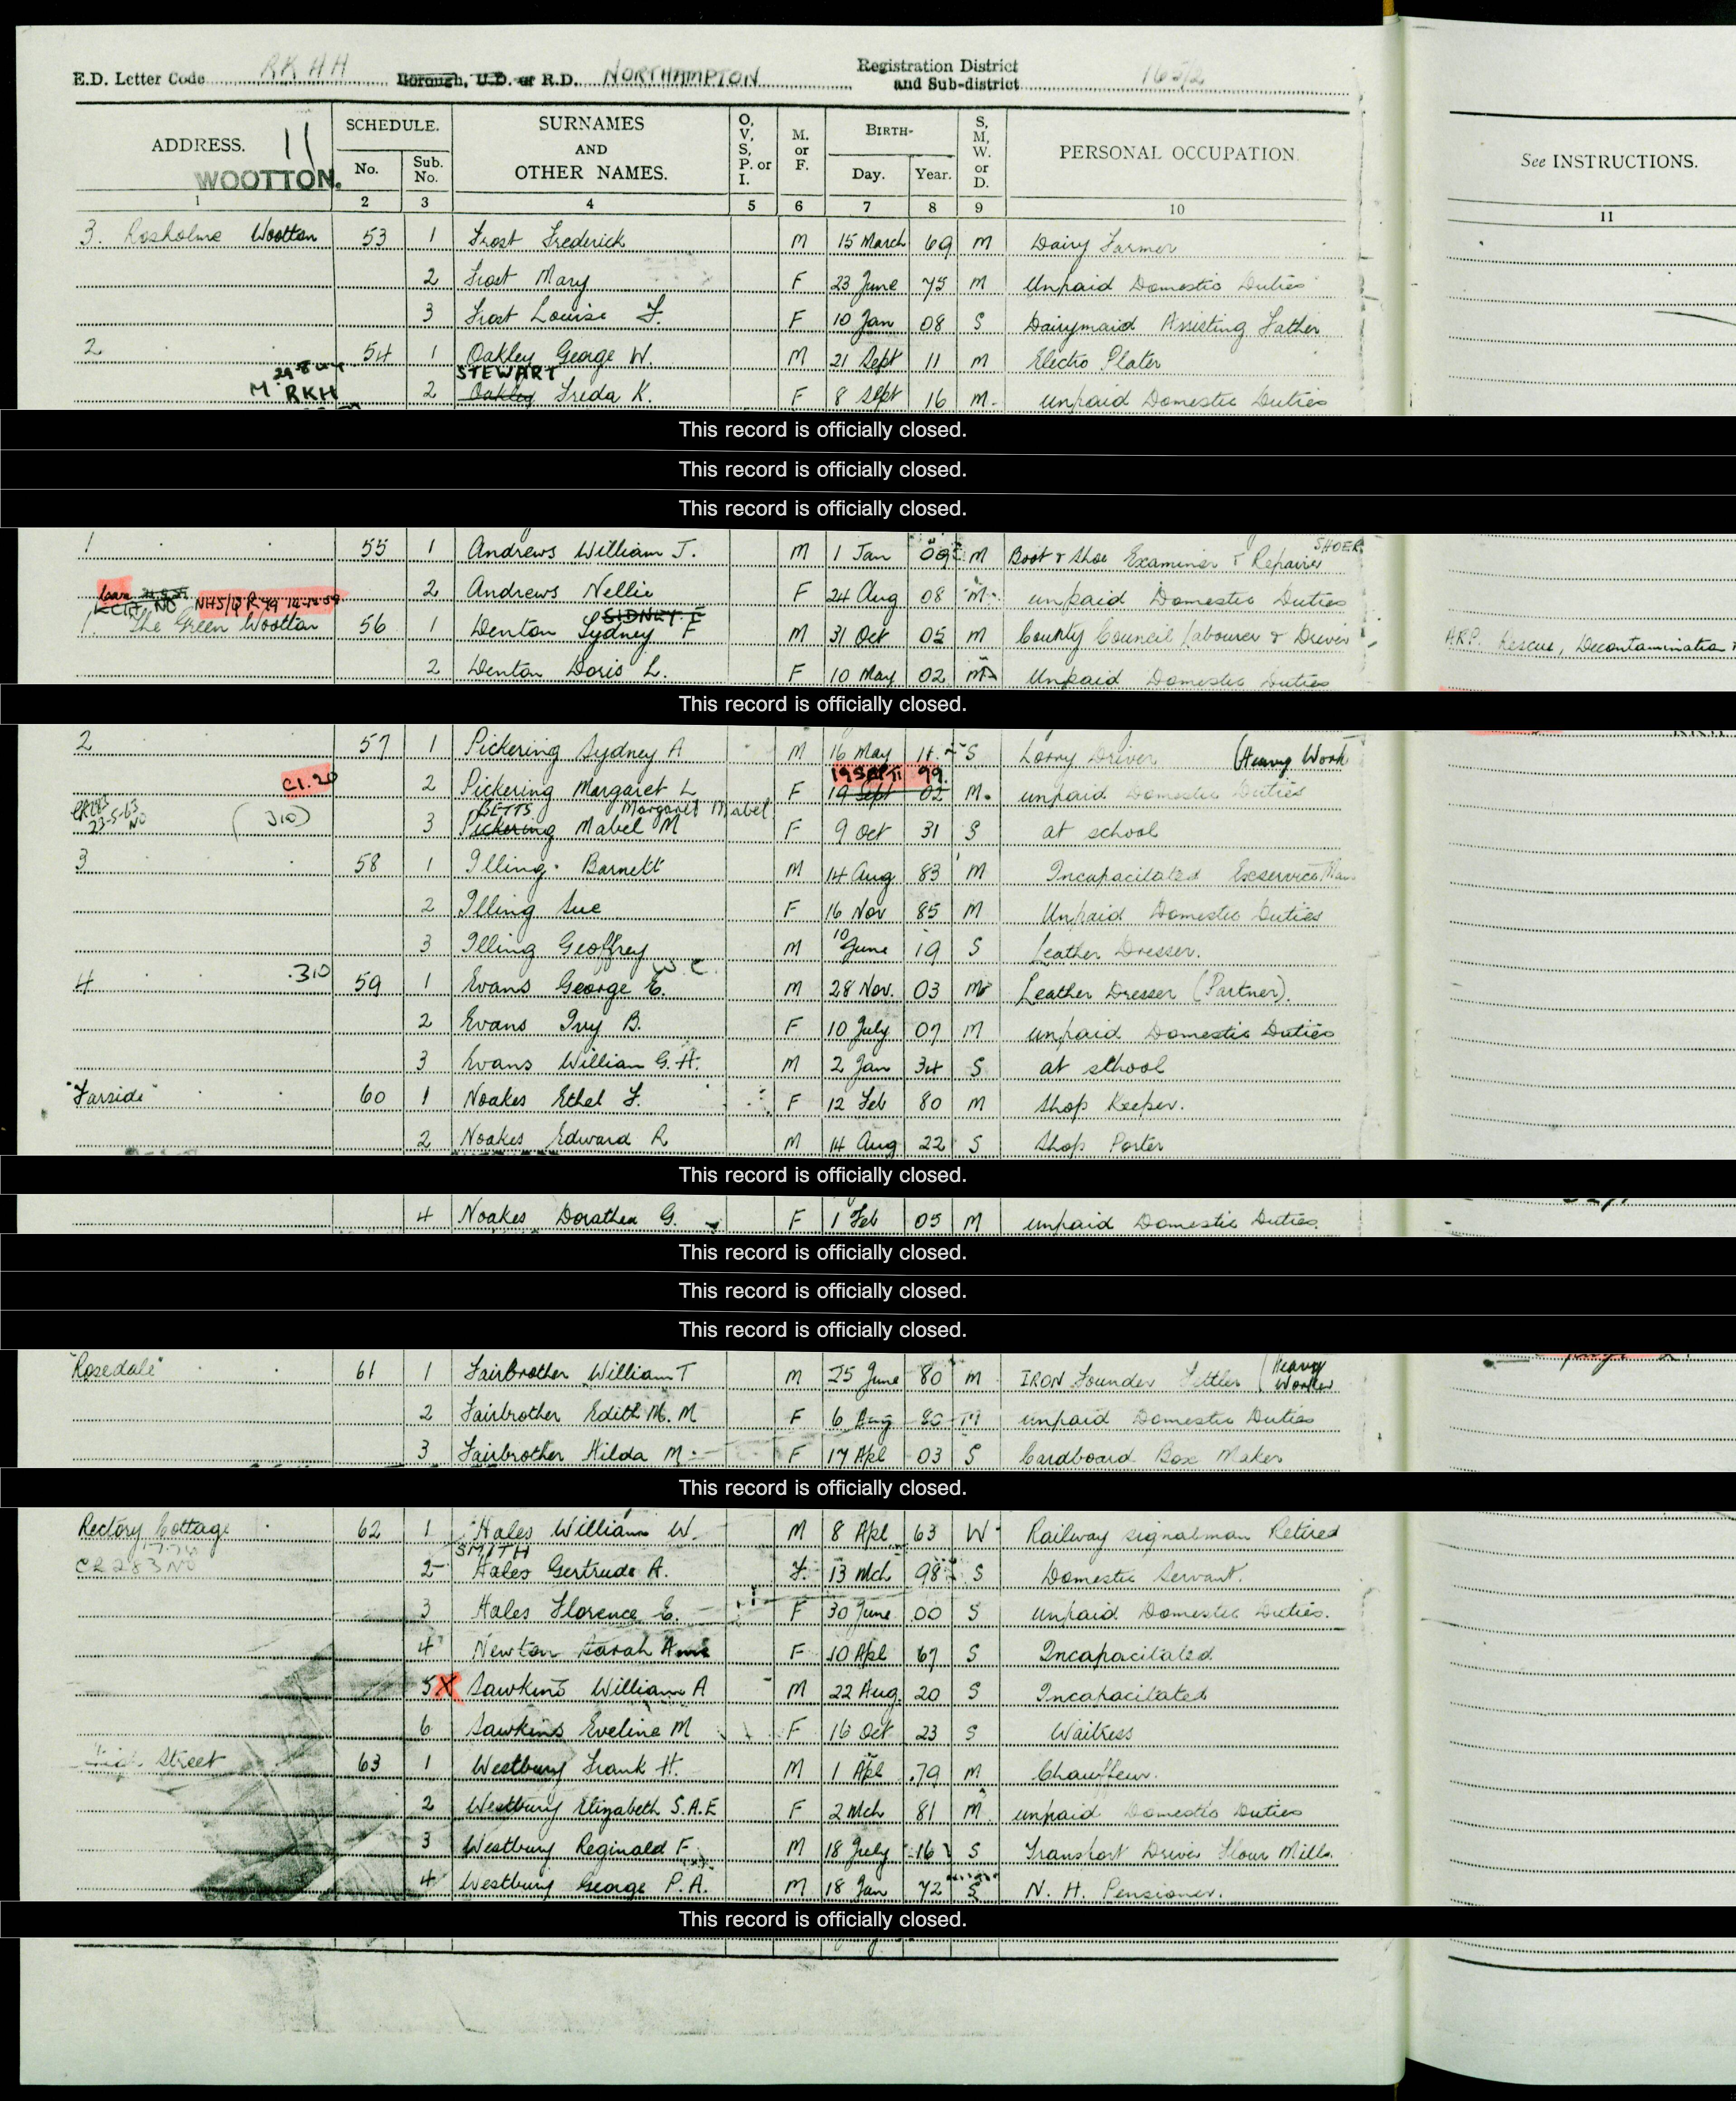 E.D. Letter Code RKHH Borough, U.D. or R.D. NORTHAMPTON Registration District and Sub-district 165/2
ADDRESS. 11 WOOTTON. SCHEDULE. No. Sub. No. SURNAMES AND OTHER NAMES. O, V, S, P. or I. M. or F. BIRTH- Day. Year. S, M, W. or D. PERSONAL OCCUPATION. See INSTRUCTIONS.
1 2 3 4 5 6 7 8 9 10 11
3. Rosholme Wootton 53 1 Frost Frederick M 15 March 69 M Dairy Farmer
2 Frost Mary F 23 June 75 M Unpaid Domestic Duties
3 Frost Louise F. F 10 Jan 08 S Dairymaid Assisting Father
2 54 1 Oakley George W. M 21 Sept 11 M Electro Plater
STEWART
M RKH 2 Oakley Freda K. F 8 Sept 16 M. unpaid Domestic Duties
This record is officially closed.
This record is officially closed.
This record is officially closed.
1 55 1 Andrews William J. M 1 Jan 09 M Boot & Shoe Examiner & Repairer SHOER
2 Andrews Nellie F 24 Aug 08 M. unpaid Domestic Duties
NO NHS/
SIDNEY F
1. The Green Wootton 56 1 Denton Sydney F M 31 Oct 05 M County Council Labourer & Driver ARP. Rescue, Decontamination
2 Denton Doris L. F 10 May 02 M Unpaid Domestic Duties
This record is officially closed.
2 57 1 Pickering Sydney A M 16 May 11 S Lorry Driver (Heavy Work
19 SEPT 99.
C1.20 2 Pickering Margaret L F 19 Sept 02 M. unpaid Domestic Duties
BETTS Margaret Mabel
23-5-63 NO (310) 3 Pickering Mabel M F 9 Oct 31 S at school
3 58 1 Illing Barnett M 14 Aug 83 M Incapacitated Exservice Man
2 Illing Sue F 16 Nov 85 M Unpaid Domestic Duties
3 Illing Geoffrey M 10 June 19 S Leather Dresser.
W.C.
4 310 59 1 Evans George E. M 28 Nov. 03 M Leather Dresser (Partner).
2 Evans Ivy B. F 10 July 07 M unpaid Domestic Duties
3 Evans William G.H. M 2 Jan 34 S at school
"Farside" 60 1 Noakes Ethel F. F 12 Feb 80 M Shop Keeper.
2 Noakes Edward R M 14 Aug 22 S Shop Porter
This record is officially closed.
4 Noakes Dorothea G. F 1 Feb 05 M unpaid Domestic Duties.
This record is officially closed.
This record is officially closed.
This record is officially closed.
"Rosedale" 61 1 Fairbrother William T M 25 June 80 M IRON Founder Fettler (Heavy Worker
2 Fairbrother Edith M. M F 6 Aug 80 M unpaid Domestic Duties
3 Fairbrother Hilda M F 17 Apl 03 S Cardboard Box Maker
This record is officially closed.
Rectory Cottage 62 1 Hales William W. M 8 Apl 63 W Railway signalman Retired
SMITH
CR 283 NO 2 Hales Gertrude A. F. 13 Mch 98 S Domestic Servant.
3 Hales Florence E. F 30 June 00 S Unpaid Domestic Duties.
4 Newton Sarah Ann F 10 Apl 67 S Incapacitated
5 X Sawkins William A M 22 Aug. 20 S Incapacitated
6 Sawkins Eveline M F 16 Oct 23 S Waitress
Street 63 1 Westbury Frank H. M 1 Apl 79 M Chauffeur.
2 Westbury Elizabeth S.A.E F 2 Mch 81 M unpaid Domestic Duties
3 Westbury Reginald F. M 18 July 16 S Transport Driver Flour Mills.
4 Westbury George P.A. M 18 Jan 72 S N. H. Pensioner.
This record is officially closed.